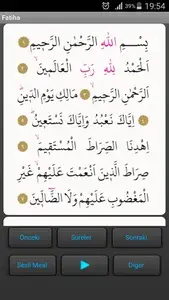 19:54
Fatiha
بِسْمِ اللّٰهِ الرَّحْمٰنِ الرَّحٖيمِ ﴿١﴾
اَلْحَمْدُ لِلّٰهِ رَبِّ الْعَالَمٖينَۙ ﴿٢﴾
اَلرَّحْمٰنِ الرَّحٖيمِۙ ﴿٣﴾ مَالِكِ يَوْمِ الدّٖينِؕ ﴿٤﴾
اِيَّاكَ نَعْبُدُ وَاِيَّاكَ نَسْتَعٖينُؕ ﴿٥﴾
اِهْدِنَا الصِّرَاطَ الْمُسْتَقٖيمَۙ ﴿٦﴾
صِرَاطَ الَّذٖينَ اَنْعَمْتَ عَلَيْهِمْ غَيْرِ
الْمَغْضُوبِ عَلَيْهِمْ وَلَا الضَّٓالّٖينَ ﴿٧﴾
Önceki Sureler Sonraki
Sesli Meal Diğer